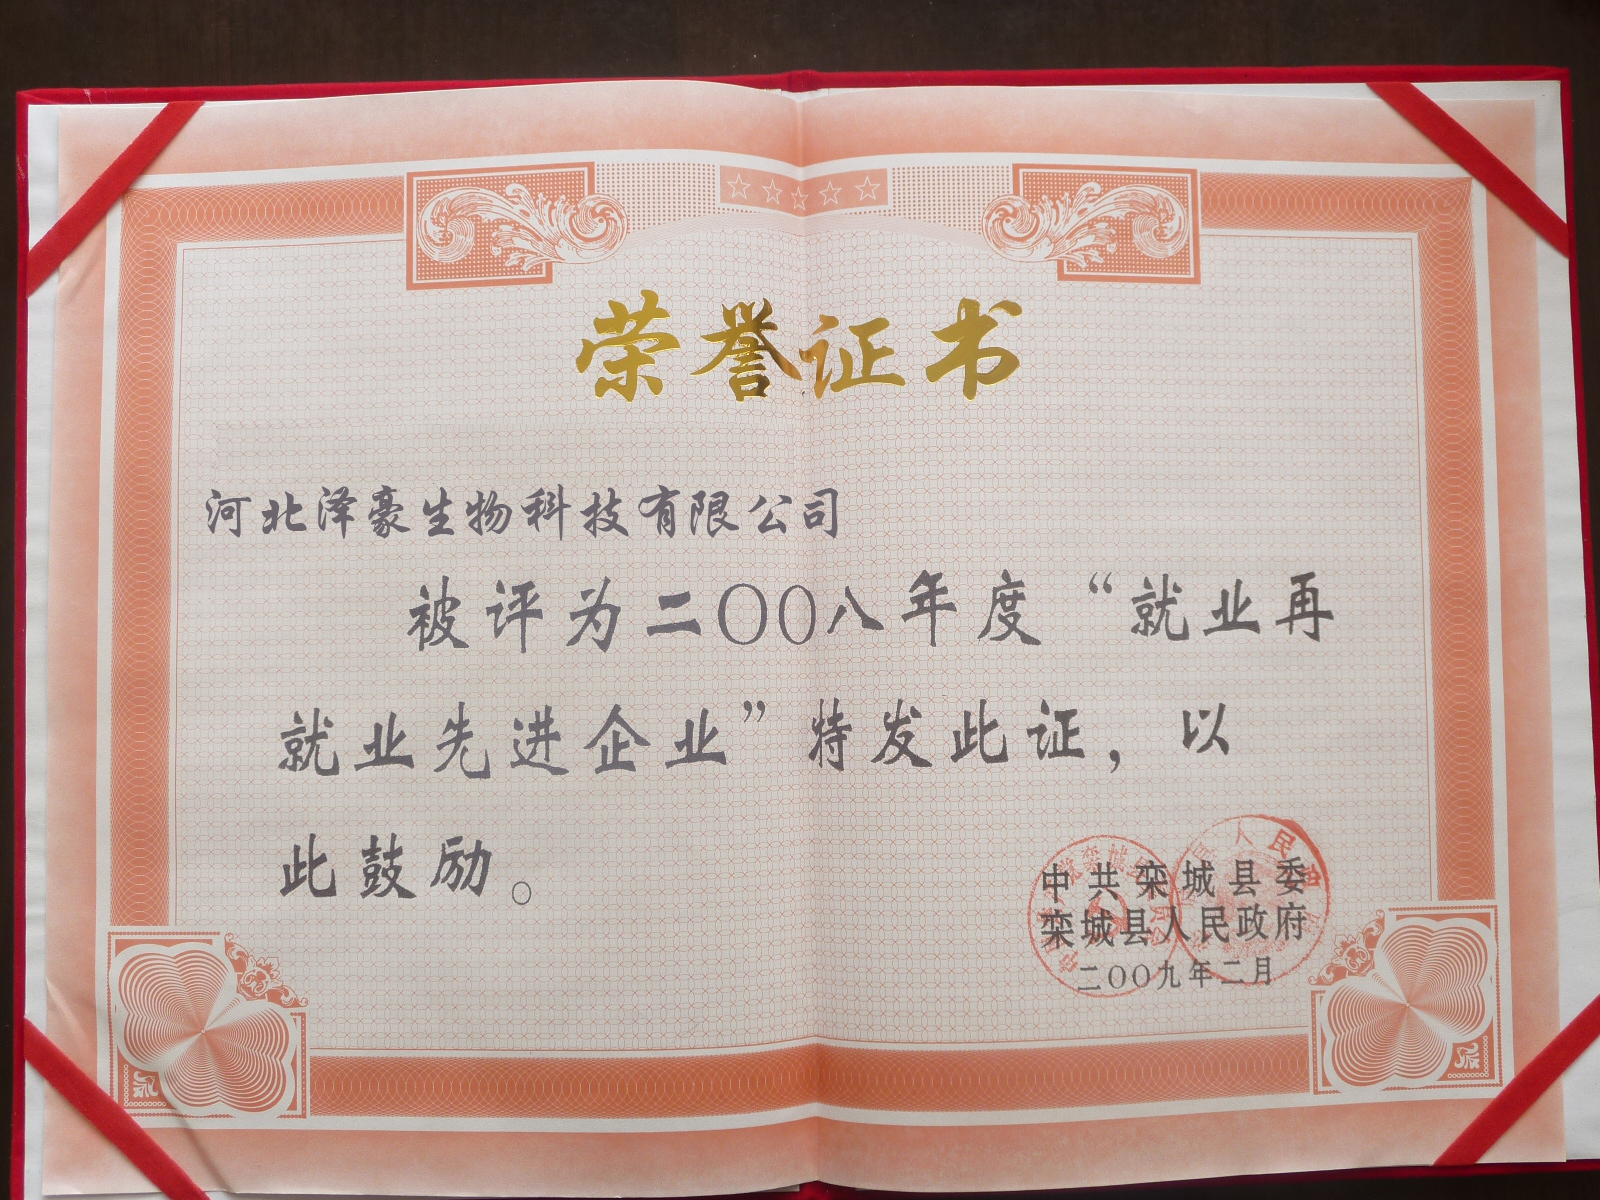 荣誉证书
河北泽豪生物科技有限公司
被评为二〇〇八年度“就业再
就业先进企业”特发此证，以
此鼓励。
中共栾城县委
栾城县人民政府
二〇〇九年二月